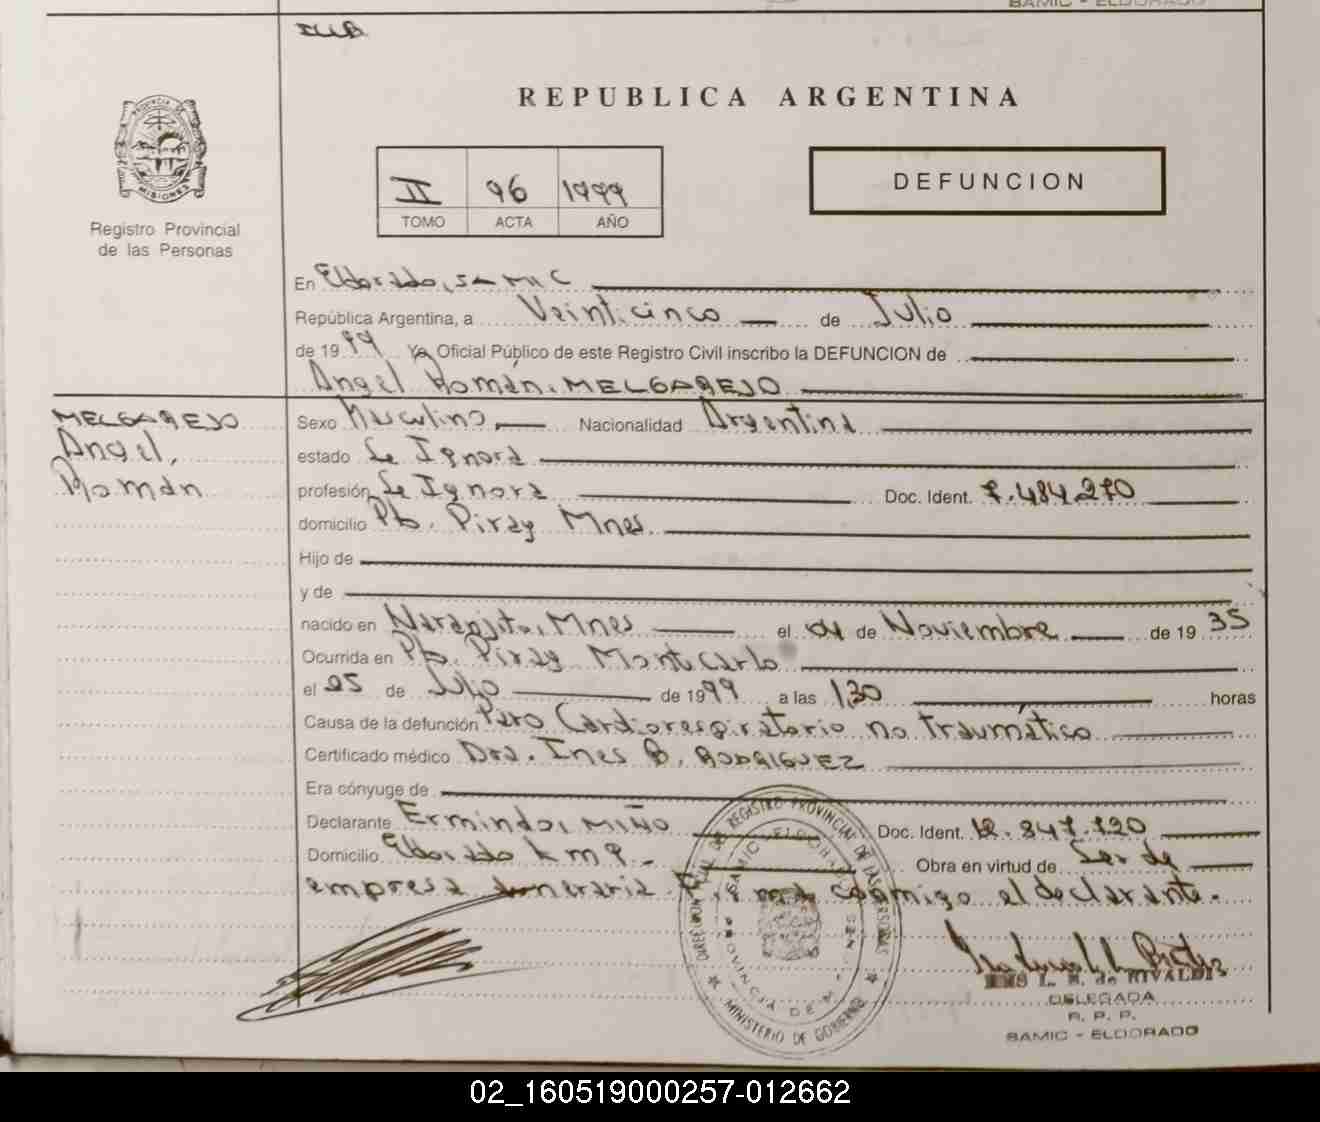 SAMIC - ELDORADO
REPUBLICA ARGENTINA
PROVINCIA DE
MISIONES
Registro Provincial
de las Personas
II 96 1999
TOMO ACTA AÑO
DEFUNCION
En Eldorado, SAMIC
República Argentina, a Veinticinco de Julio
de 1999 Yo Oficial Público de este Registro Civil inscribo la DEFUNCION de
Angel Román. MELGAREJO
MELGAREJO
Angel,
Román
Sexo Masculino, Nacionalidad Argentina
estado Se Ignora
profesión Se Ignora Doc. Ident. 7.484.270
domicilio Pto. Piray Mnes
Hijo de
y de
nacido en Naranjito, Mnes el 04 de Noviembre de 1935
Ocurrida en Pto. Piray Montecarlo
el 25 de Julio de 1999 a las 1,30 horas
Causa de la defunción Paro Cardiorespiratorio no traumático
Certificado médico Dra. Ines B. RODRIGUEZ
Era cónyuge de
Declarante Ermindo, MIÑO Doc. Ident. 12.847.720
Domicilio Eldorado km 9 - Obra en virtud de Ser de
empresa funeraria. Firma conmigo el declarante.
DIRECCION GRAL. DEL REGISTRO PROVINCIAL DE LAS PERSONAS
MINISTERIO DE GOBIERNO
PROVINCIA DE
L. B. de RIVALDI
DELEGADA
R. P. P.
SAMIC - ELDORADO
02_160519000257-012662